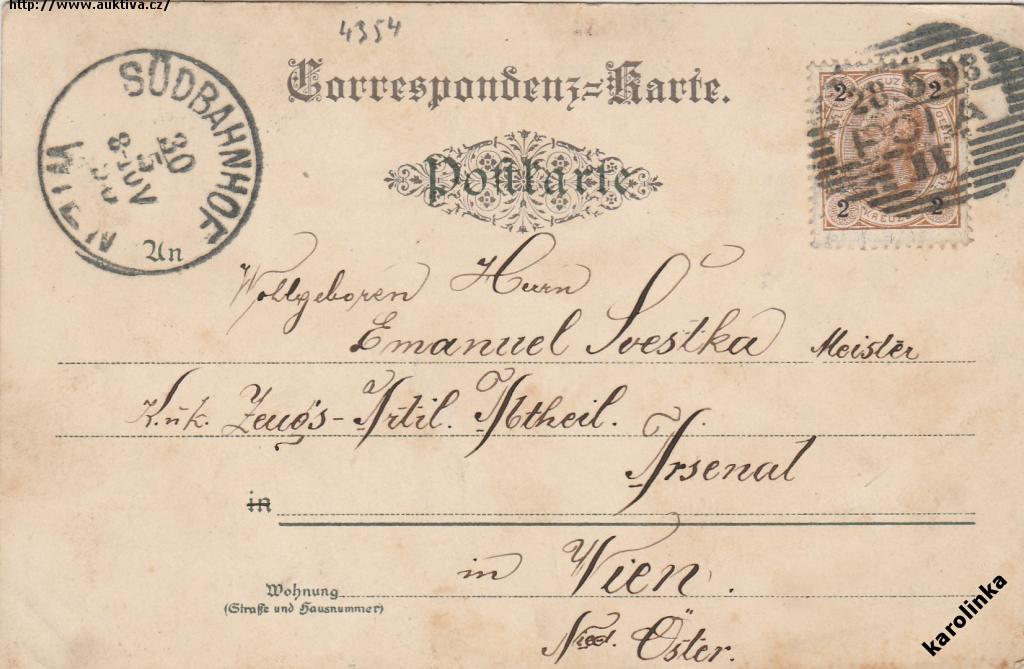 http://www.auktiva.cz/
4354
Correspondenz-Karte.
Postkarte
SÜDBAHNHOF
30
5
8-10V
WIEN
2 KREUZER 2
28.5.98
POLA
11
2 KREUZER 2
An
Wohlgeboren Herrn
Emanuel Svestka Meister
K.u.k. Zeugs-Artil. Abtheil.
Arsenal
in
in Wien.
Wohnung
(Straße und Hausnummer)
Nied. Öster.
karolinka